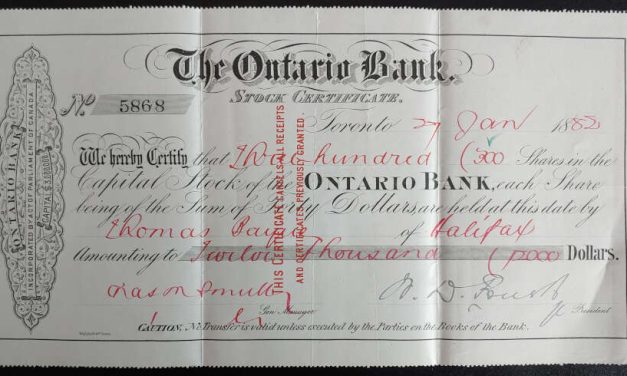 ONTARIO BANK
INCORPORATED BY ACT OF PARLIAMENT OF CANADA
The Ontario Bank.
STOCK CERTIFICATE.
No. 5868
Toronto 27 Jan 1882
We hereby Certify that hundred (300 Shares in the
Capital Stock of the ONTARIO BANK, each Share
being of the Sum of Dollars, are held at this date by
Thomas of Halifax
Amounting to Thousand Dollars.
THIS CERTIFICATE CANCELS ALL RECEIPTS
AND CERTIFICATES PREVIOUSLY GRANTED
Gen Manager
President
CAUTION. No Transfer is valid unless executed by the Parties on the Books of the Bank.